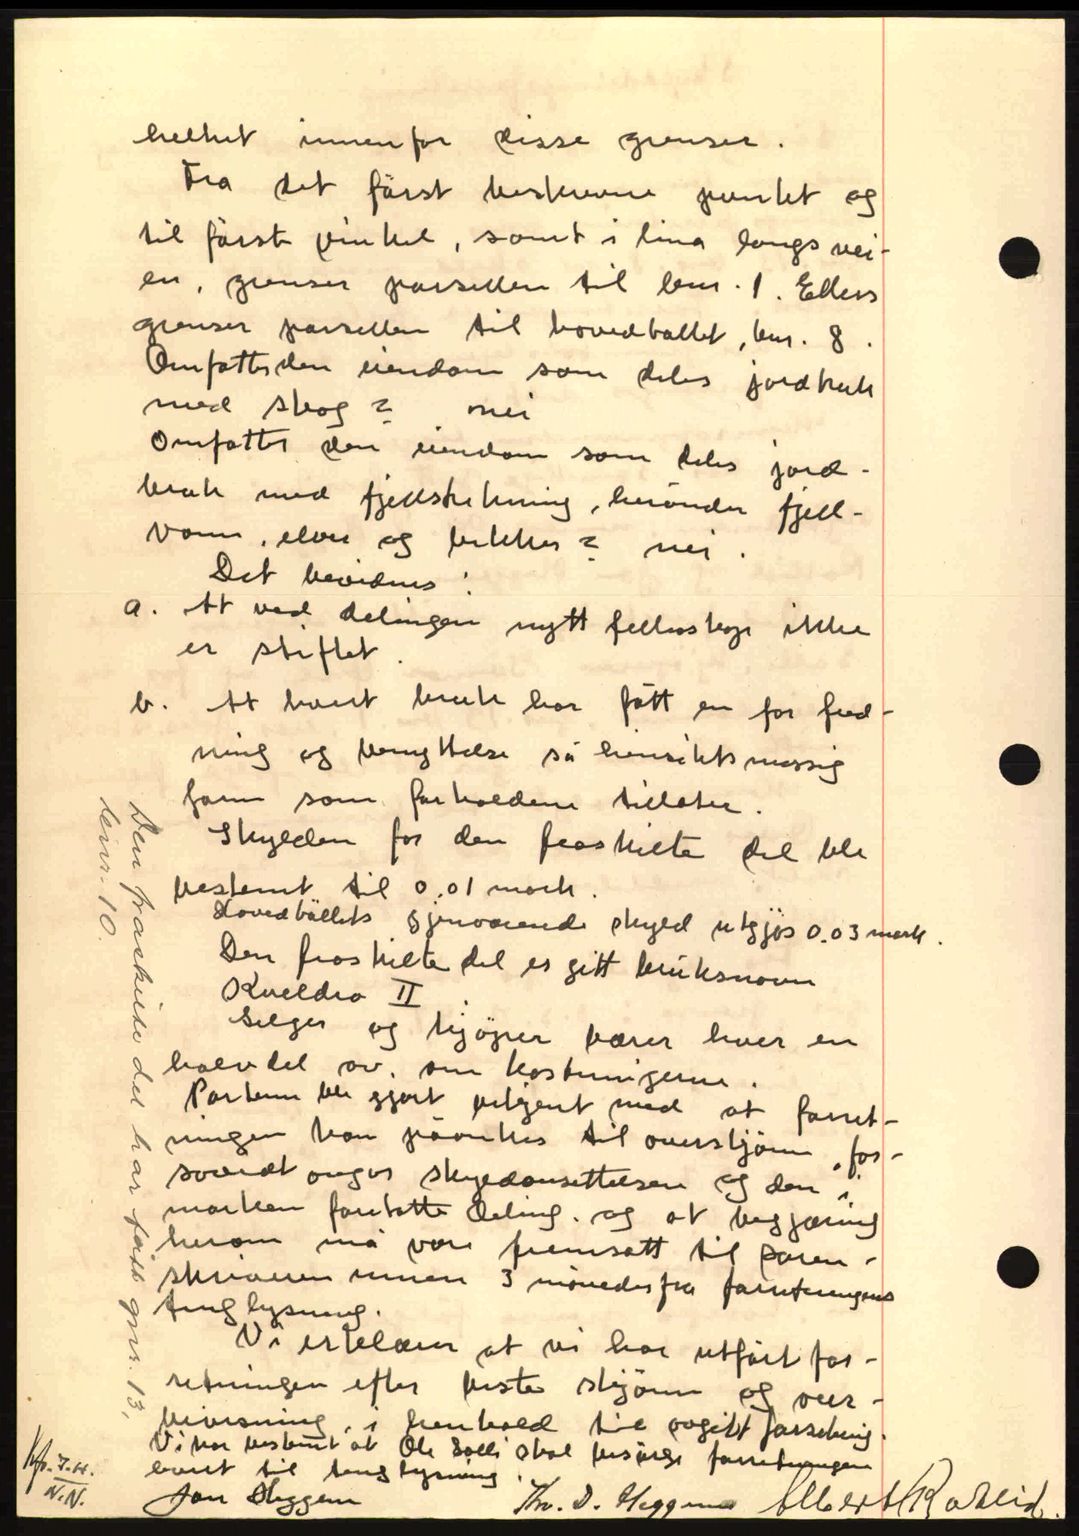 helhet innenfor disse grenser.
Fra det først beskrevne punkt og
til første vinkel, samt i lina langs vei-
en, grenser parsellen til bnr. 1. Ellers
grenser parsellen til hovedbøllet, bnr. 8.
Omfatter den eiendom som deles jordbruk
med skog? nei
Omfatter den eiendom som deles jord-
bruk med fjellstrekning, herunder fjell-
vann, elver og bekker? nei.
Det bevidnes:
a. At ved delingen nytt felleskap ikke
er stiftet.
b. At hvert bruk har fått en for fred-
ning og benyttelse så hensiktsmessig
form som forholdene tillater.
Skylden for den fraskilte del ble
bestemt til 0,01 mark.
Hovedbøllets gjenværende skyld utgjør 0.03 mark.
Den fraskilte del er gitt bruksnavn
Kveldro II.
Selger og kjøper bærer hver en
halvdel av omkostningerne.
Partene ble gjort bekjent med at forret-
ningen kan påankes til overskjønn, for-
såvidt angår skyldansettelsen og den i
marken foretatte deling, og at begjæring
herom må være fremsatt til soren-
skriveren innen 3 måneder fra forretningens
tinglysning.
Vi erklærer at vi har utført for-
retningen efter beste skjønn og over-
bevisning, i henhold til avgitt forsikring.
Vi har bestemt at Ole Solli skal besørge forretningen
bort til tinglysning.
Jon Heggem Thv. D. Heggem Albert Rokseid.
Den fraskilte del har fått gnr. 13,
bnr. 10.
N.N.